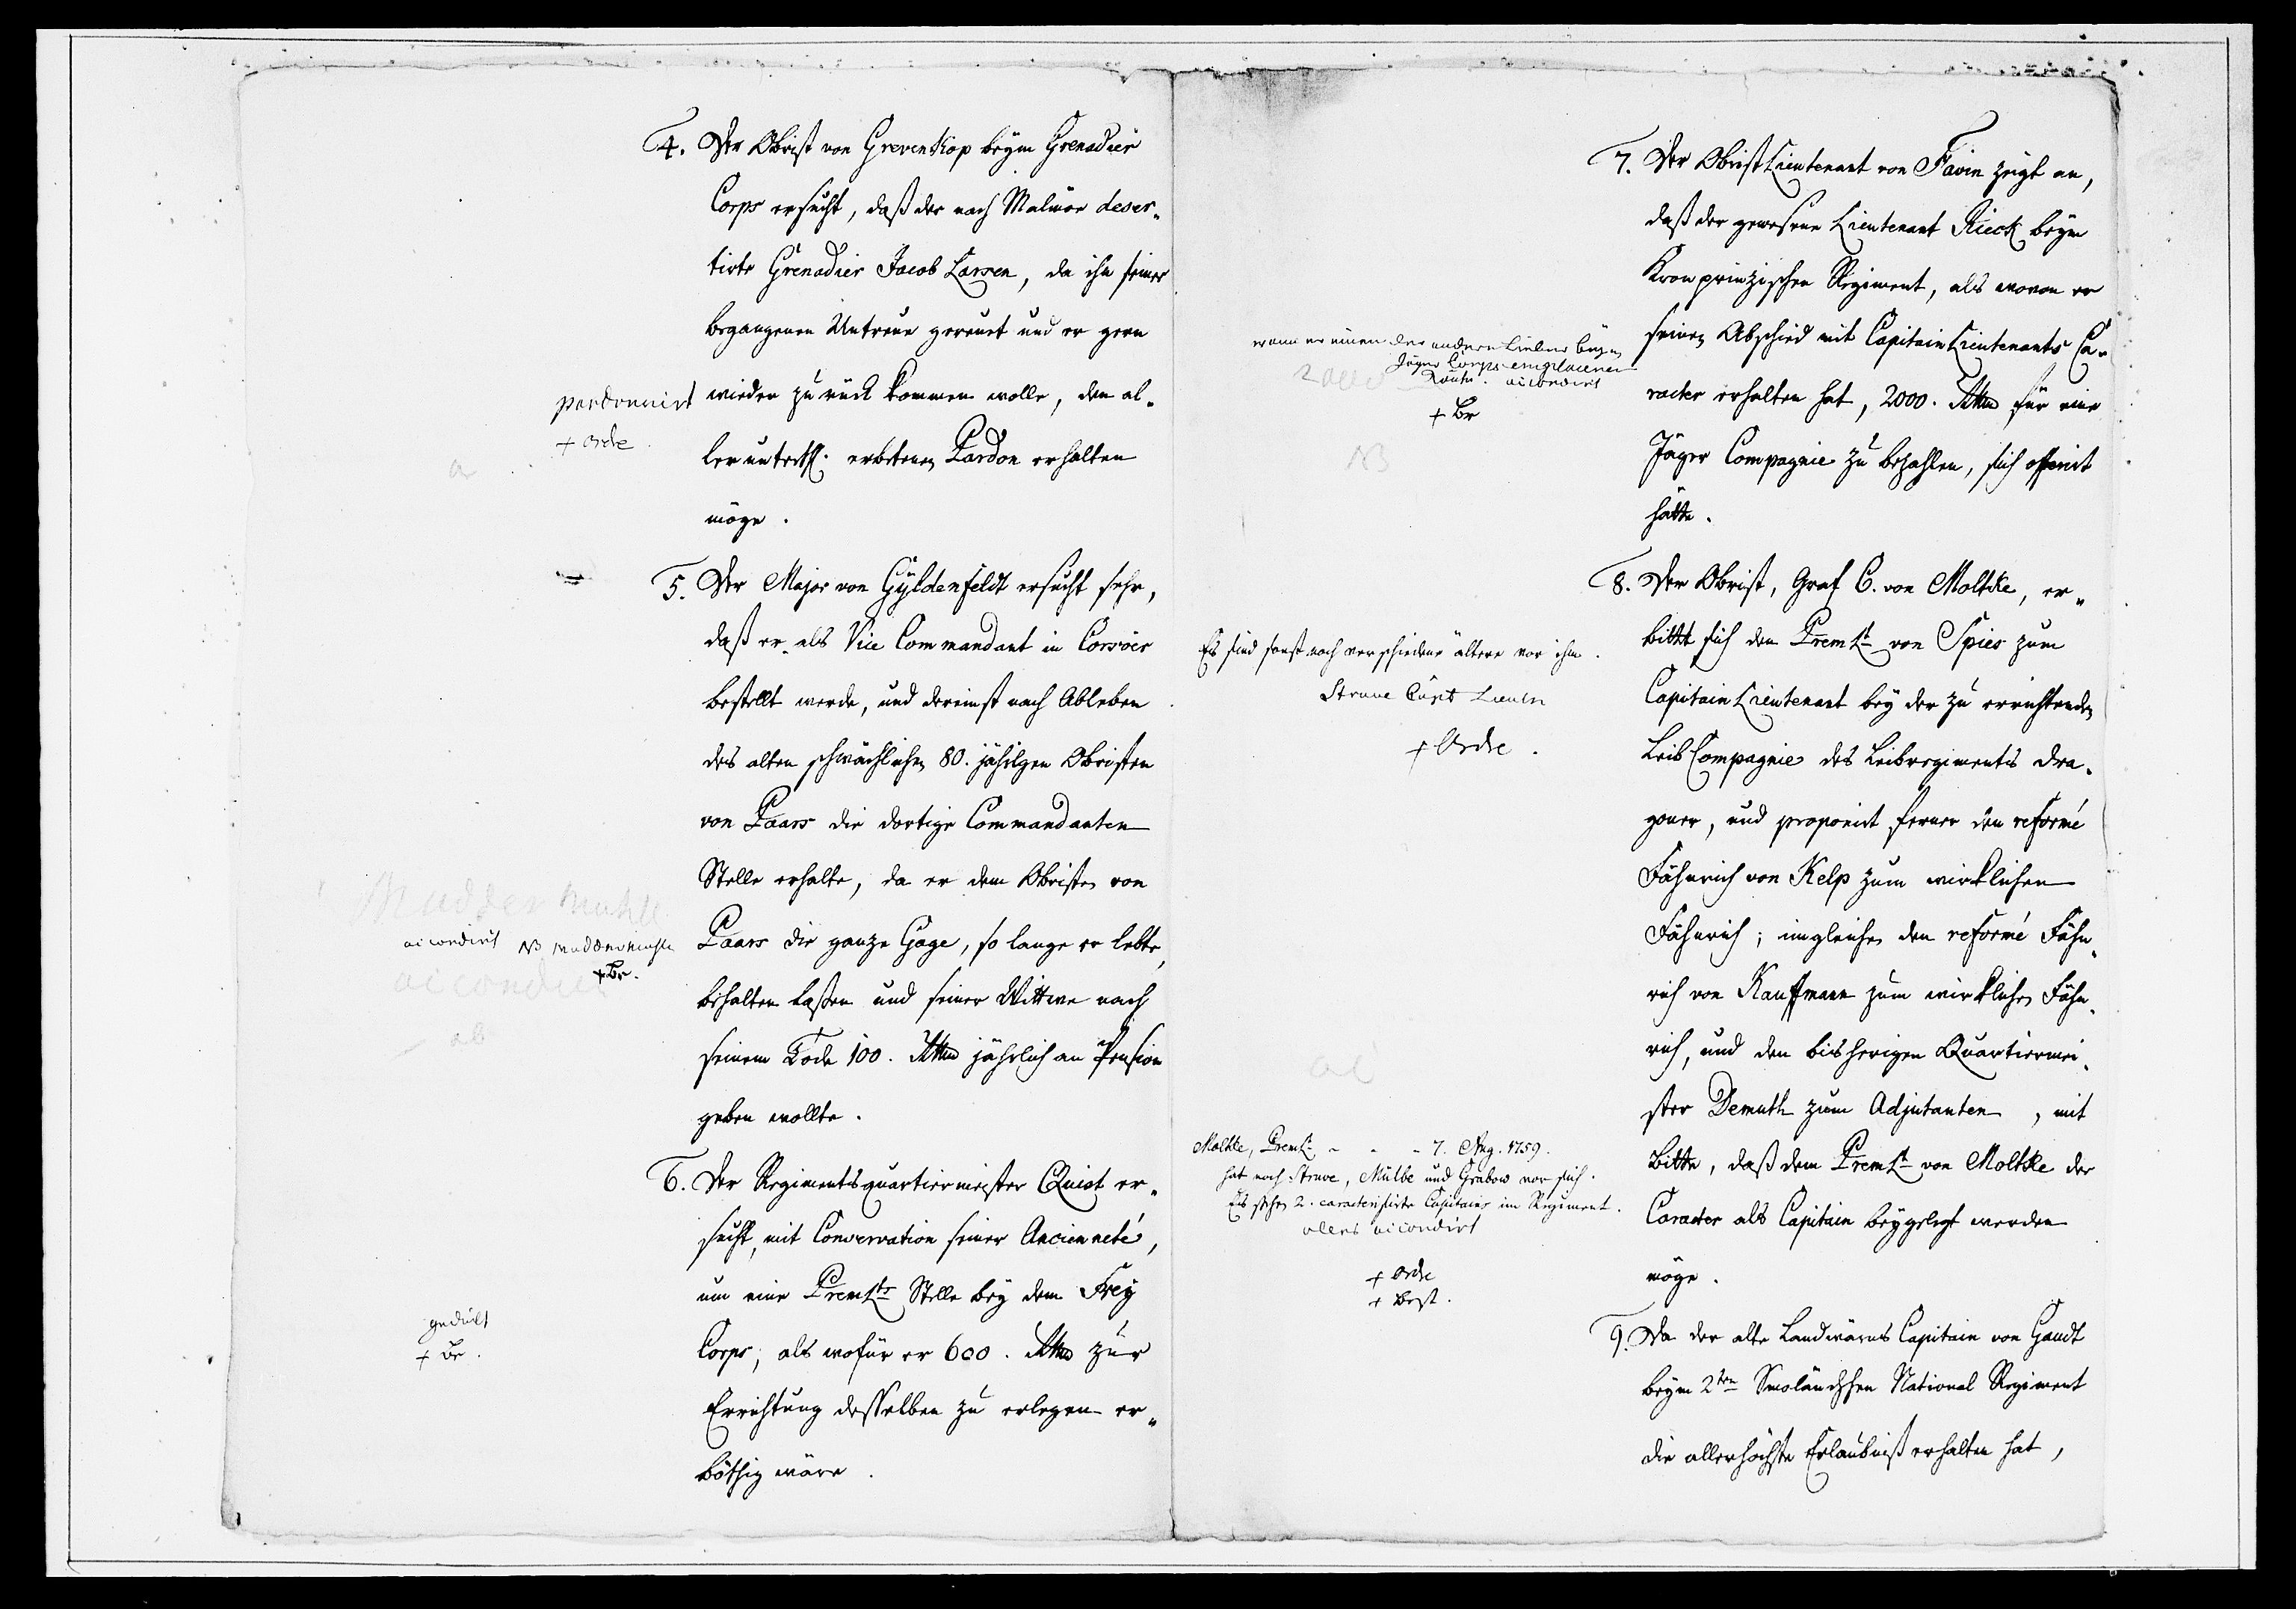 4. Der Obrist von Grevenkop beym Grenadier
Corps ersucht, daß der nach Malmöe deser-
tirte Grenadier Jacob Larsen, da ihn seiner
begangenen Untreue gereuet und er gern
wieder zurück kommen wolle, den al-
ler unterth. erbetenen Pardon erhalten
möge.
pardonnirt
+ Ordre
a
5. Der Major von Gyldenfeldt ersucht sehr,
daß er als Vice Commandant in Corsöer
bestellt werde, und dereinst nach Ableben
des alten schwächlichen 80. jährigen Obristen
von Paars die dortige Commandanten
Stelle erhalte, da er dem Obristen von
Paars die ganze Gage, so lange er lebte,
behalten laßen und seiner Wittwe nach
seinem Tode 100. Rthlr jährlich an Pension
geben wollte.
accordirt
+ Br.
accordirt
6. Der Regimentsquartiermeister Quist er-
sucht, mit Conservation seiner Ancienneté,
um eine Prem Lts Stelle bey dem Frey
Corps, als wofür er 600. Rthlr zur
Errichtung desselben zu erlegen er-
böthig wäre.
gedult
+ Br.
7. Der Obrist Lieutenant von Favin zeigt an,
daß der gewesene Lieutenant Rieck beym
Kronprinzischen Regiment, als wovon er
seinen Abschied mit Capitain Lieutenants Ca-
racter erhalten hat, 2000. Rthlr für eine
Jäger Compagnie zu bezahlen, sich offerirt
hätte.
wann er einen der andern beym
Jäger Corps
accordirt
+ Br
NB
8. Der Obrist, Graf C. von Moltke, er-
bittet sich den Prem Lt von Spies zum
Capitain Lieutenant bey der zu errichtenden
Leib Compagnie des Leibregiments Dra-
goner, und proponirt ferner den reformé
Fähnrich von Kelp zum wirklichen
Fähnrich; imgleichen den reformé Fähn-
rich von Kauffmann zum wirklichen Fähn-
rich, und den bisherigen Quartiermei-
ster Demuth zum Adjutanten, mit
Bitte, daß dem Prem Lt von Moltke der
Caracter als Capitain beygelegt werden
möge.
Es sind sonst noch verschiedene ältere vor ihm.
Struve Capt Lieutn
+ Ordre.
Moltke, Prem Lt - - - 7. Aug. 1759.
hat noch Struve, Mülbe und Grabow vor sich.
Es stehen 2. caracterisirte Capitains im Regiment.
alles accordirt
+ Ordre
+ Best.
9. Da der alte Landwärns Capitain von Gaudt
beym 2ten Smoländschen National Regiment
die allerhöchste Erlaubniß erhalten hat,